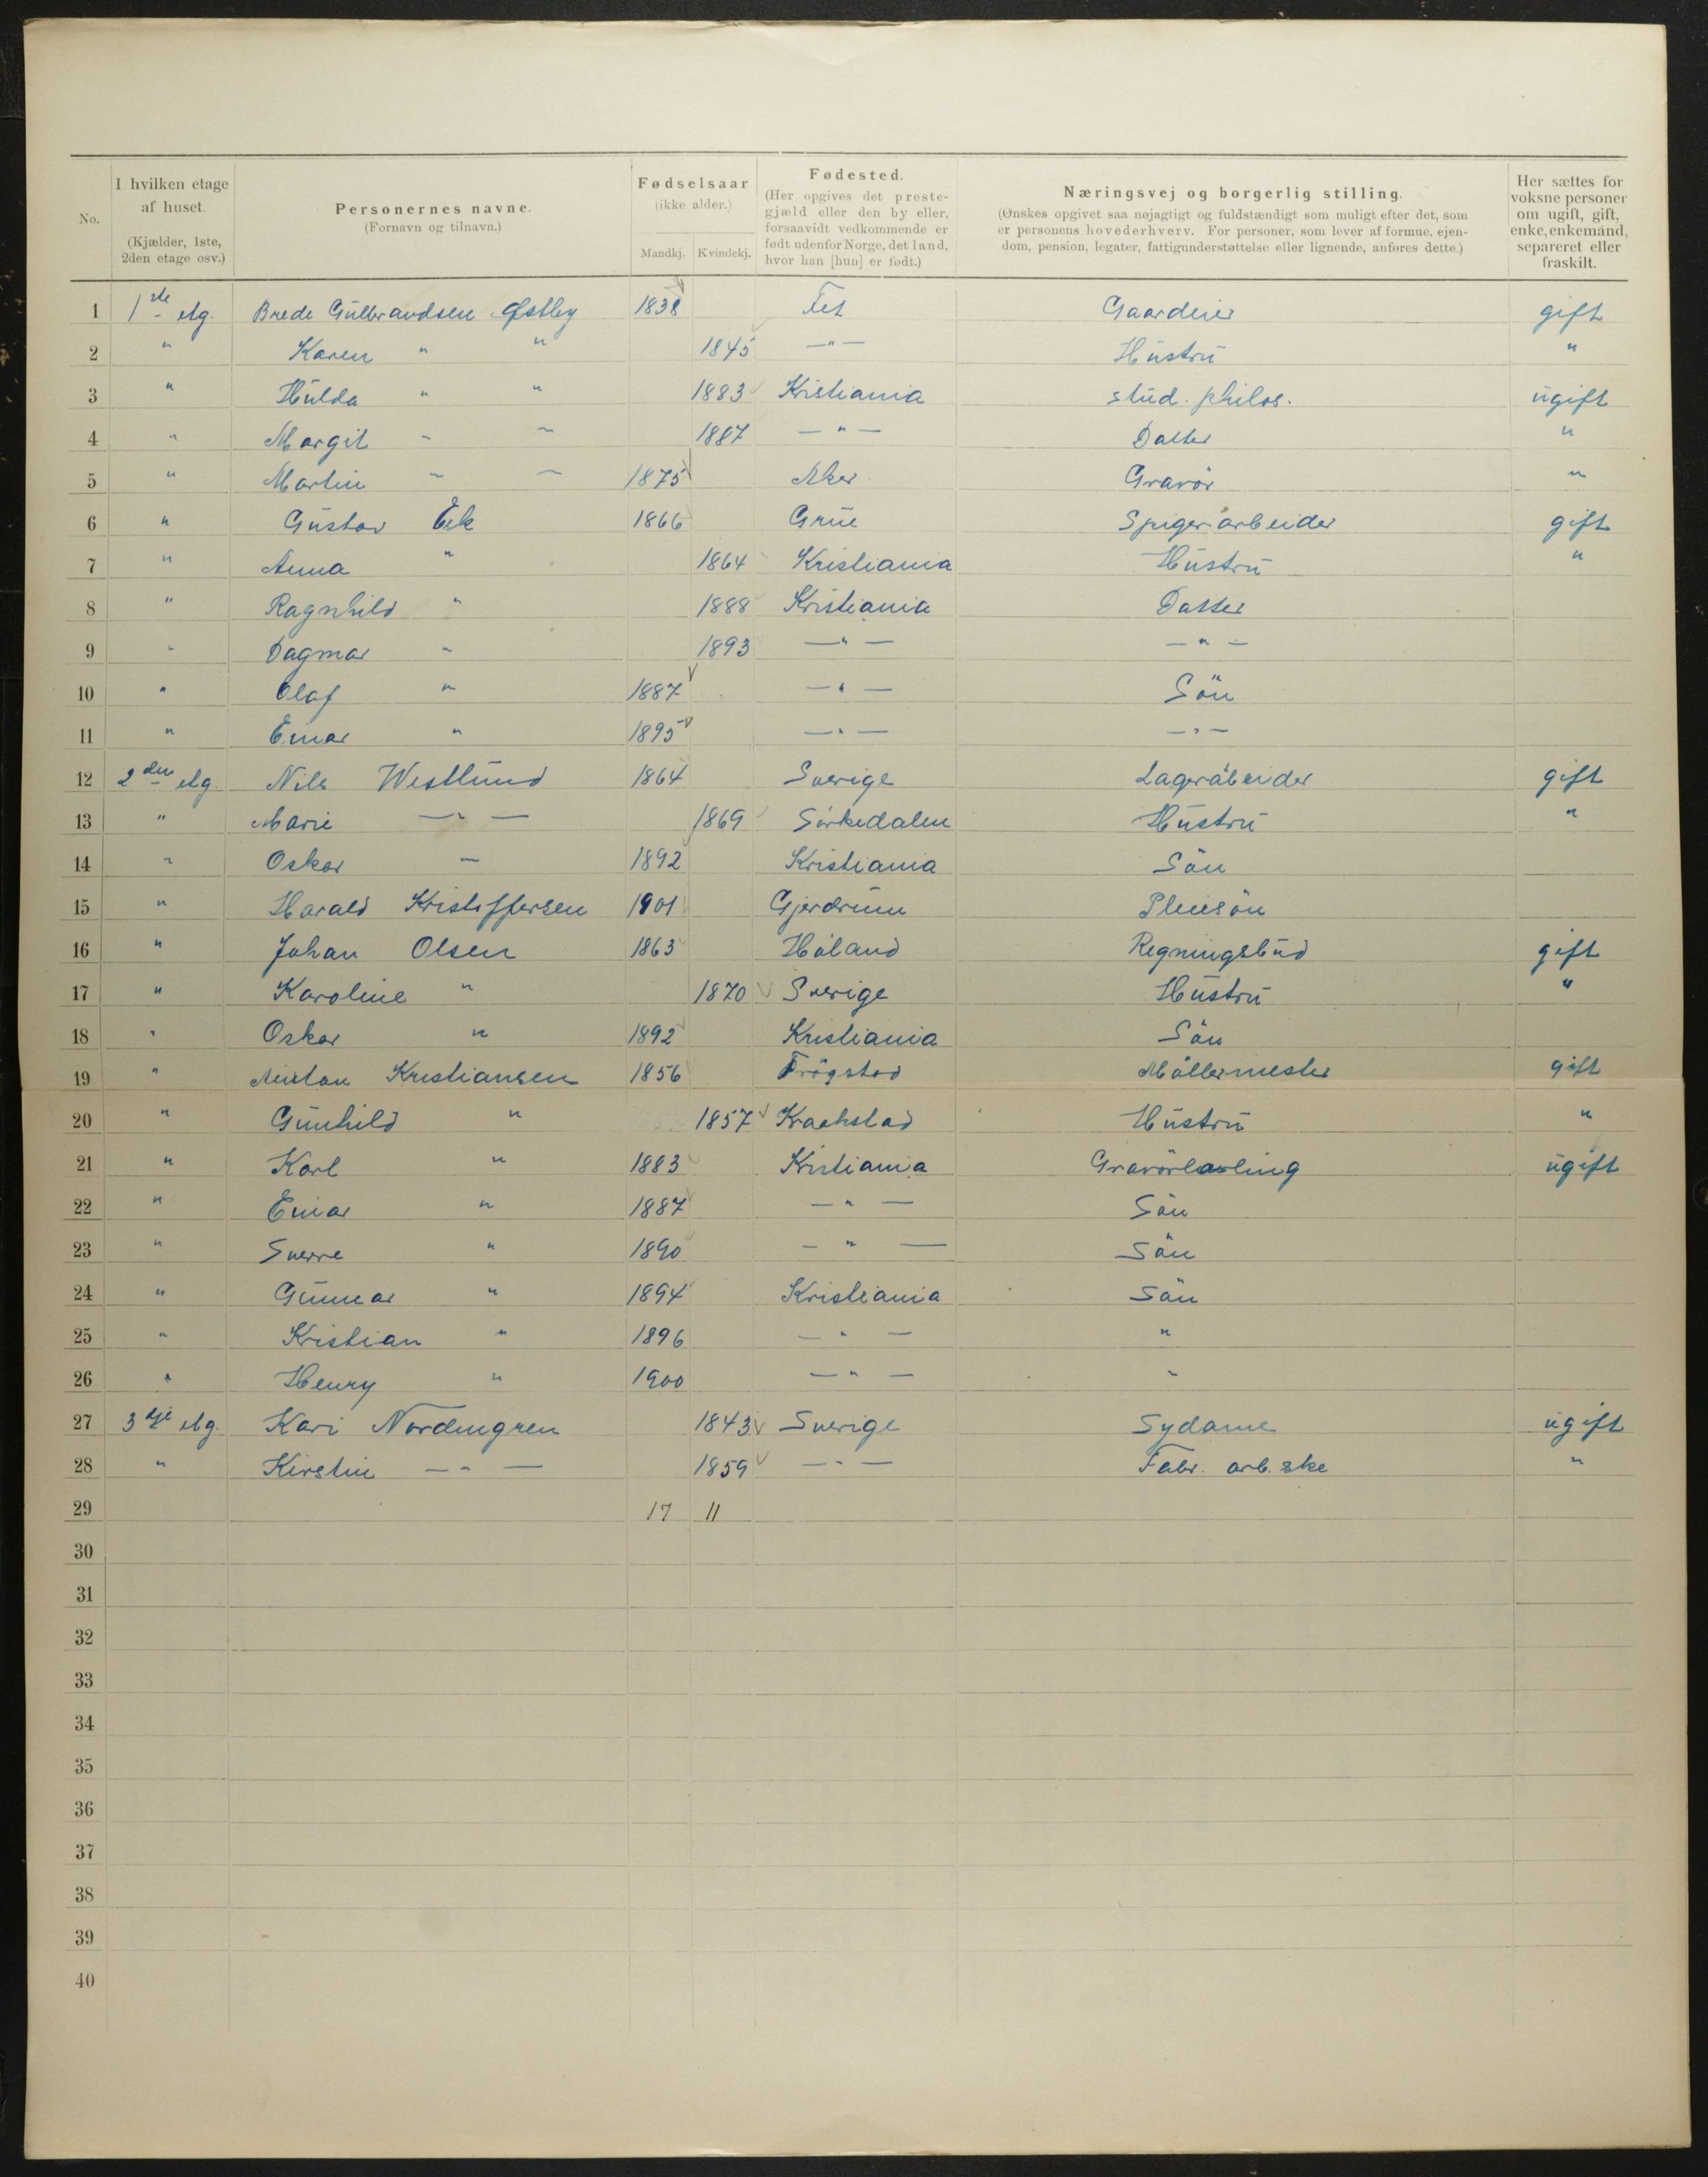 No.
I hvilken etage af huset.
(Kjælder, 1ste, 2den etage osv.)
Personernes navne.
(Fornavn og tilnavn.)
Fødselsaar
(ikke alder.)
Mandkj. Kvindekj.
Fødested.
(Her opgives det prestegjæld eller den by eller, forsaavidt vedkommende er født udenfor Norge, det land, hvor han [hun] er født.)
Næringsvej og borgerlig stilling.
(Ønskes opgivet saa nøjagtigt og fuldstændigt som muligt efter det, som er personens hovederhverv. For personer, som lever af formue, ejendom, pension, legater, fattigunderstøttelse eller lignende, anføres dette.)
Her sættes for voksne personer om ugift, gift, enke, enkemand, separeret eller fraskilt.
1 1ste etg. Brede Gulbrandsen Østby 1838 Fet Gaardeier gift
2 " Karen " " 1845 —"— Hustru "
3 " Hulda " " 1883 Kristiania stud. philos. ugift
4 " Margit " " 1887 —"— Datter "
5 " Martin " " 1875 Aker Gravör "
6 " Gustav Eek 1866 Grue Spigerarbeider gift
7 " Anna " 1864 Kristiania Hustru "
8 " Ragnhild " 1888 Kristiania Datter
9 " Dagmar " 1893 —"— —"—
10 " Olaf " 1887 —"— Sön
11 " Einar " 1895 —"— —"—
12 2den etg. Nils Westlund 1864 Sverige Lagerabeider gift
13 " Marie —"— 1869 Sörkedalen Hustru "
14 " Oskar — 1892 Kristiania Sön
15 " Harald Kristoffersen 1901 Gjerdrum Pleiesön
16 " Johan Olsen 1863 Höland Regningsbud gift
17 " Karoline " 1870 Sverige Hustru "
18 " Oskar " 1892 Kristiania Sön
19 " Anton Kristiansen 1856 Trögstad Möllermester gift
20 " Gunhild " 1857 Kraakstad Hustru "
21 " Karl " 1883 Kristiania Gravörlærling ugift
22 " Einar " 1887 —"— Sön
23 " Sverre " 1890 —"— Sön
24 " Gunnar " 1894 Kristiania Sön
25 " Kristian " 1896 —"— "
26 " Henry " 1900 —"— "
27 3dje etg. Kari Nordengren 1843 Sverige Sydame ugift
28 " Kirstin —"— 1859 —"— Fabr. arb.ske "
29 17 11
30
31
32
33
34
35
36
37
38
39
40